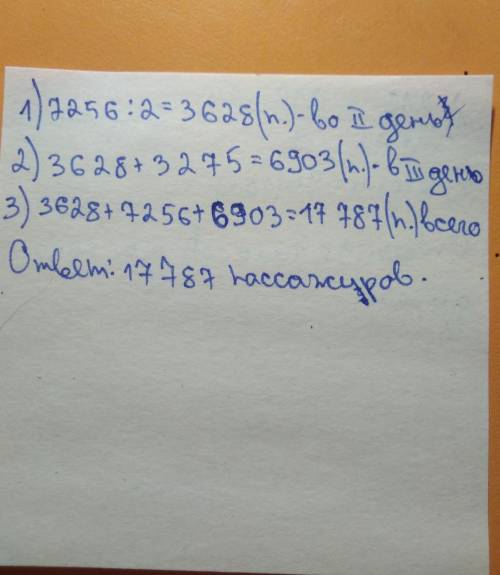 1) 7256 : 2 = 3628 (п.) - во II день
2) 3628 + 3275 = 6903 (п.) - в III день
3) 3628 + 7256 + 6903 = 17 787 (п.) всего
Ответ: 17 787 пассажиров.